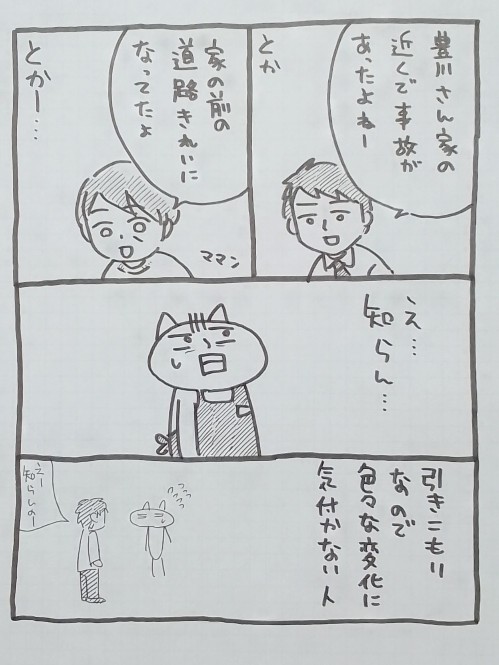 豊川さん家の
近くで事故が
あったよねー
とか
家の前の
道路きれいに
なってたよ
とかー…
ママン
え…
知らん…
引きこもり
なので
色々な変化に
気付かない人
えー
知らんのー